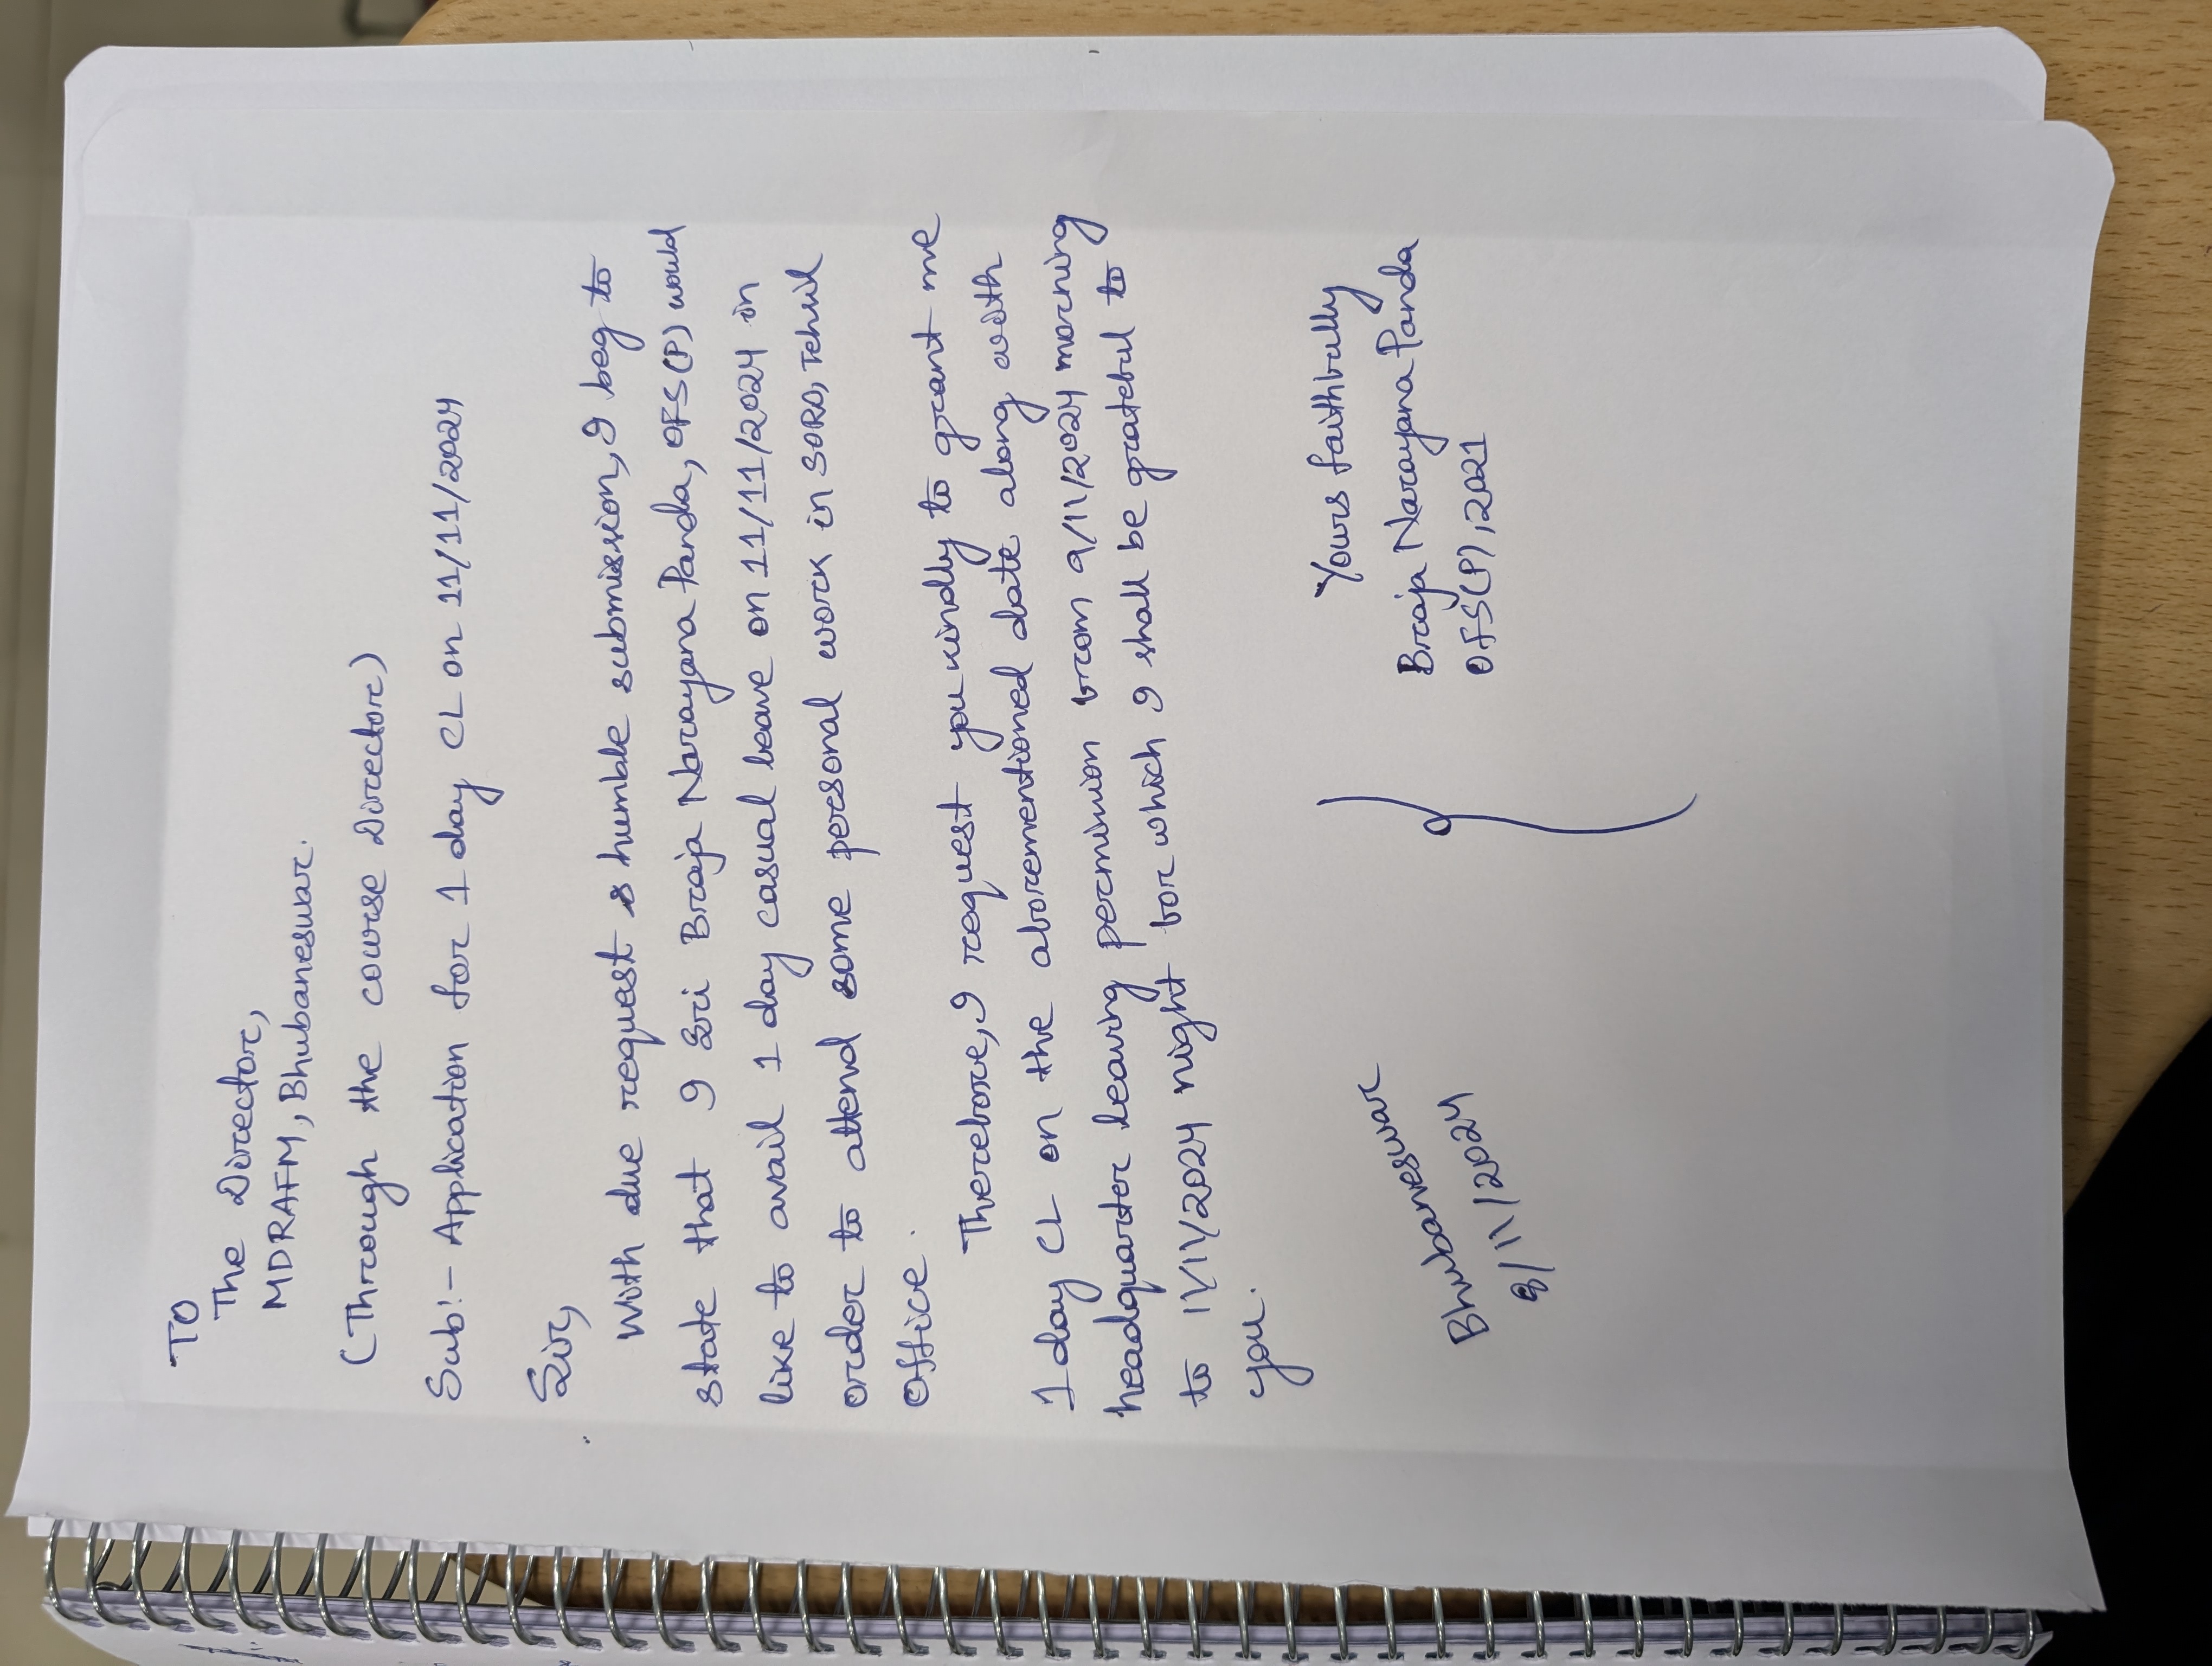 TO
The Director,
MDRAFM, Bhubaneswar.
(Through the course Director)
Sub:- Application for 1 day CL on 11/11/2024
Sir,
With due request & humble submission, I beg to
state that I Sri Braja Narayana Panda, OFS(P) would
like to avail 1 day casual leave on 11/11/2024 in
order to attend some personal work in SORO, Tehsil
office.
Therefore, I request you kindly to grant me
1 day CL on the aforementioned date along with
headquarter leaving permission from 9/11/2024 morning
to 11/11/2024 night for which I shall be grateful to
you.
Yours faithfully
Braja Narayana Panda
OFS(P), 2021
Bhubaneswar
8/11/2024